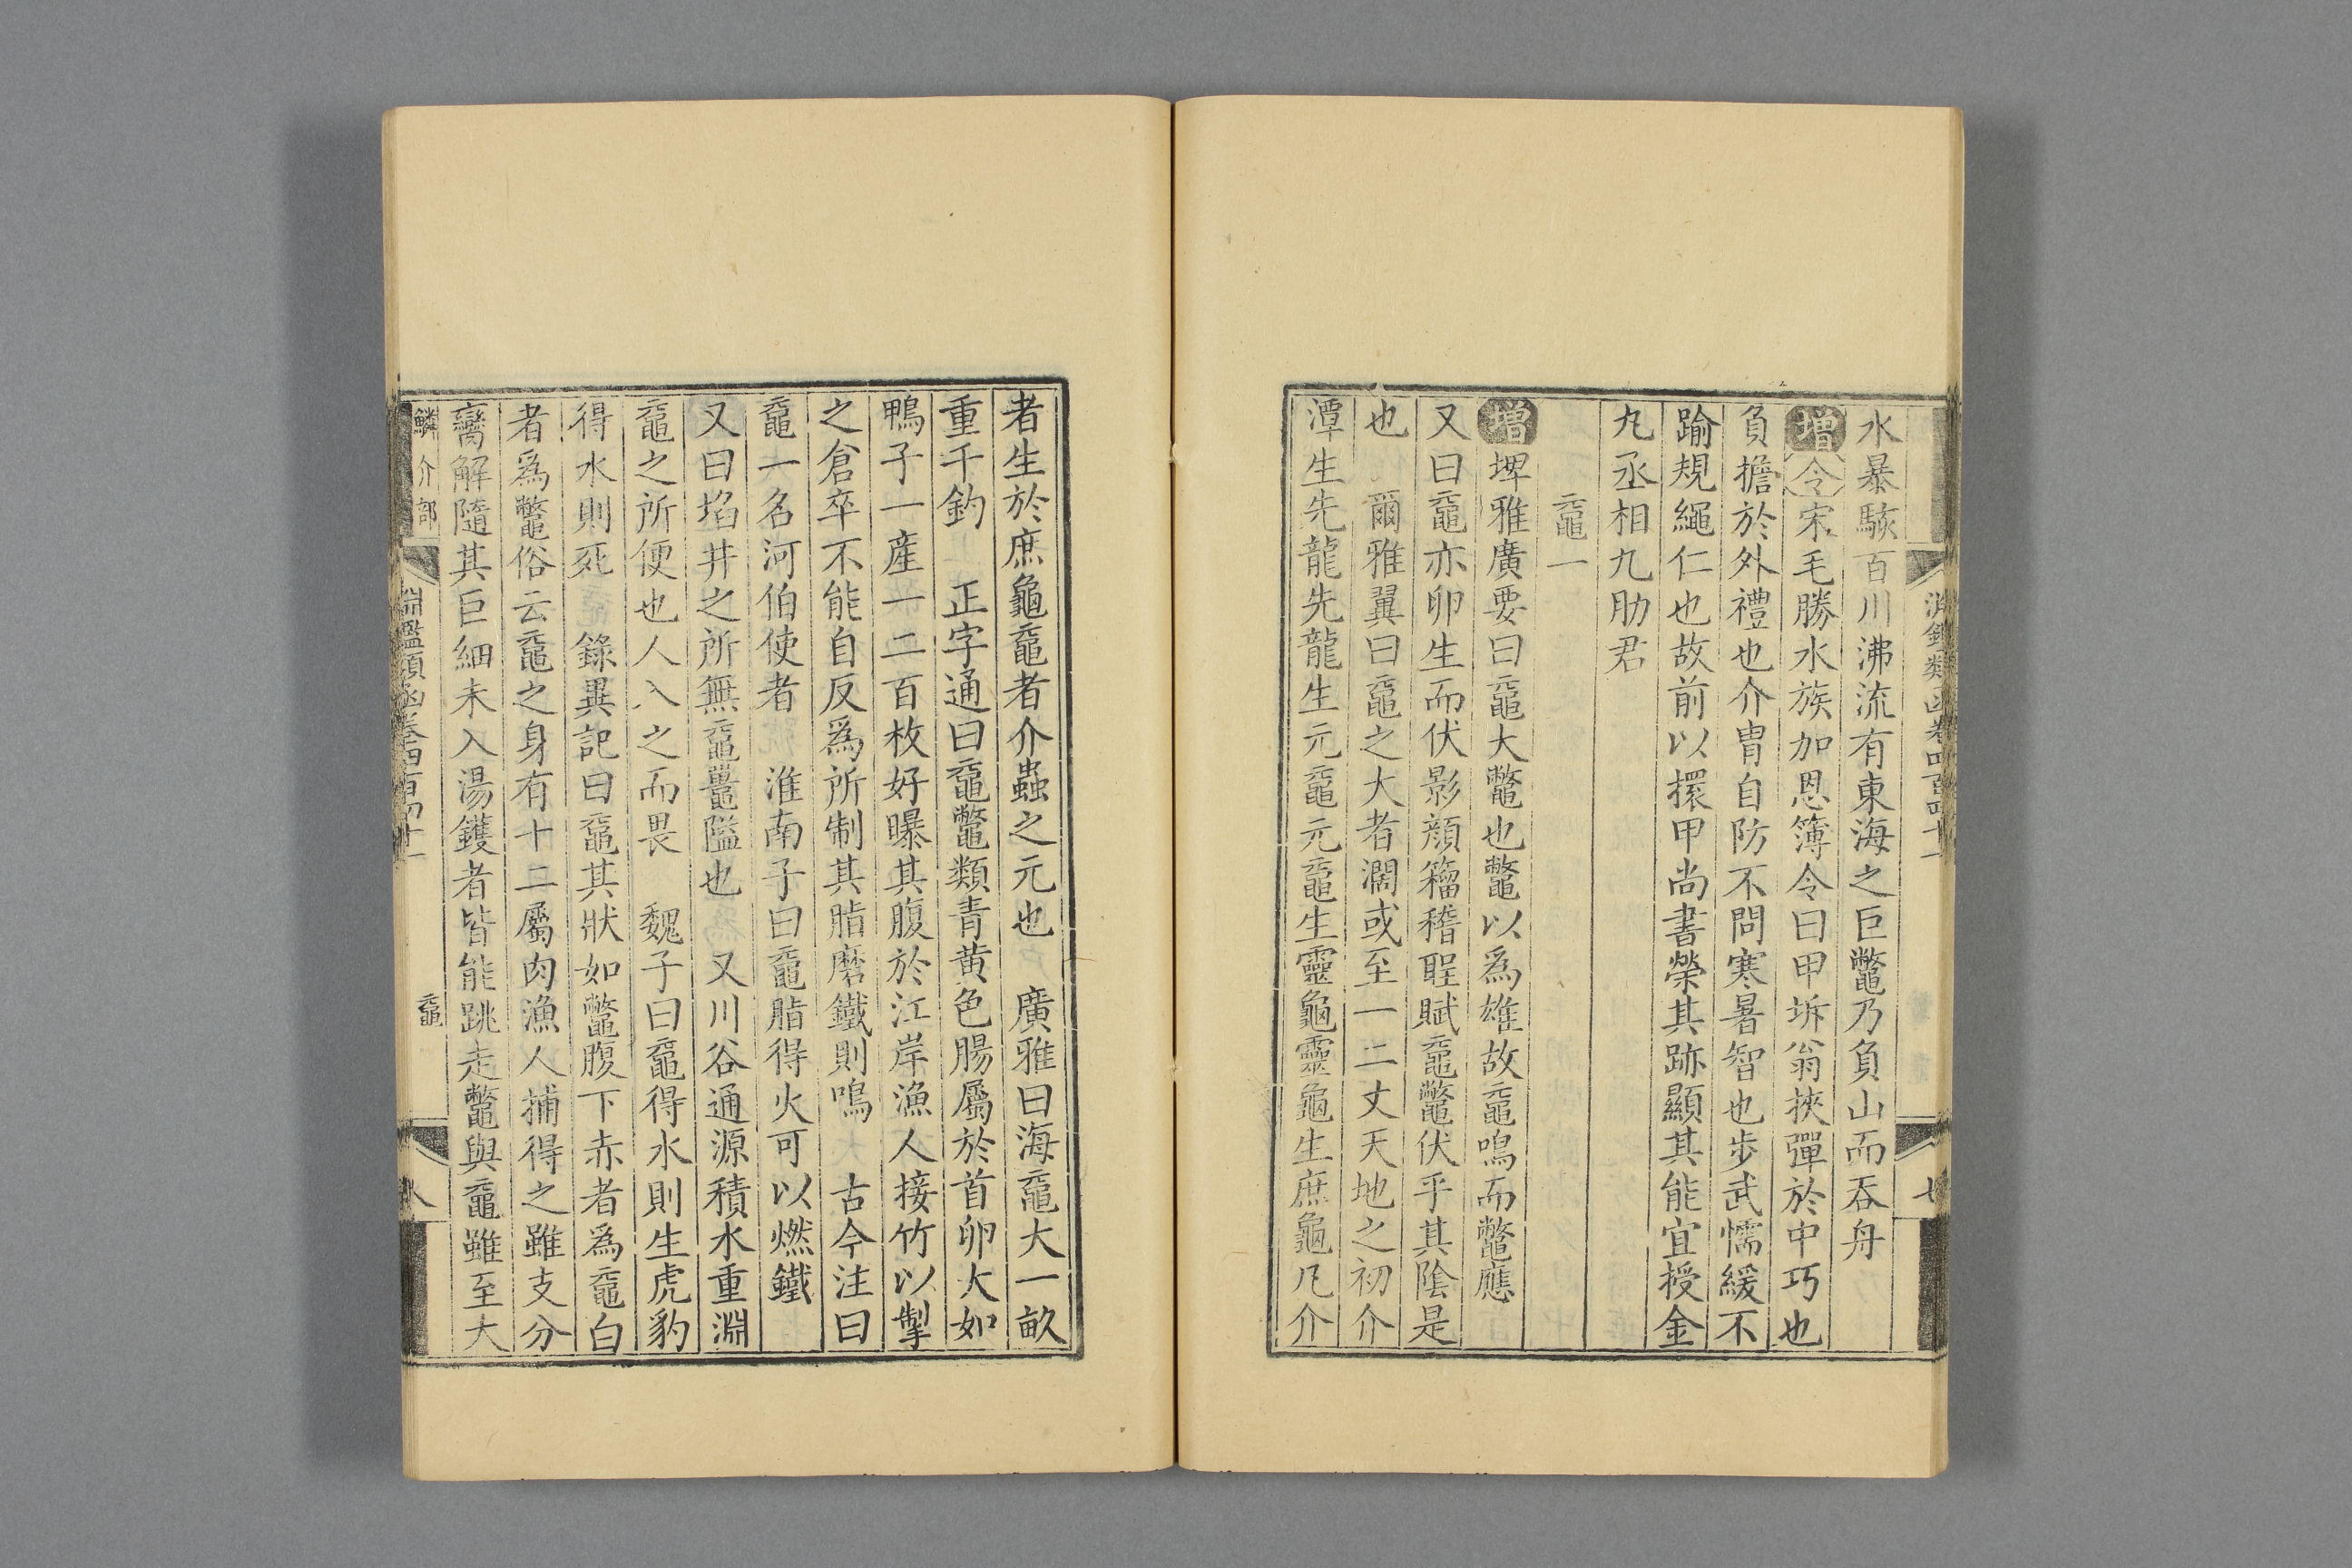 淵鑑類函卷四百四十一
七
水暴駭百川沸流有東海之巨鼈乃負山而吞舟
增令宋毛勝水族加恩簿令曰甲坼翁挾彈於中巧也
負擔於外禮也介冑自防不問寒暑智也步武懦緩不
踰規繩仁也故前以擐甲尚書榮其跡顯其能宜授金
丸丞相九肋君
黿一
增埤雅廣要曰黿大鼈也鼈以為雄故黿鳴而鼈應
又曰黿亦卵生而伏影顔籀稽聖賦黿鼈伏乎其陰是
也　爾雅翼曰黿之大者濶或至一二丈天地之初介
潭生先龍先龍生元黿元黿生靈龜靈龜生庶龜凡介
者生於庶龜黿者介蟲之元也　廣雅曰海黿大一畝
重千鈞　正字通曰黿鼈類青黃色腸屬於首卵大如
鴨子一產一二百枚好曝其腹於江岸漁人接竹以掣
之倉卒不能自反為所制其脂磨鐵則鳴　古今注曰
黿一名河伯使者　淮南子曰黿脂得火可以燃鐵
又曰埳井之所無黿鼉隘也　又川谷通源積水重淵
黿之所便也人入之而畏　魏子曰黿得水則生虎豹
得水則死　錄異記曰黿其狀如鼈腹下赤者為黿白
者為鼈俗云黿之身有十二屬肉漁人捕得之雖支分
臠解隨其巨細未入湯鑊者皆能跳走鼈與黿雖至大
鱗介部
淵鑑類函卷四百四十一
黿
八